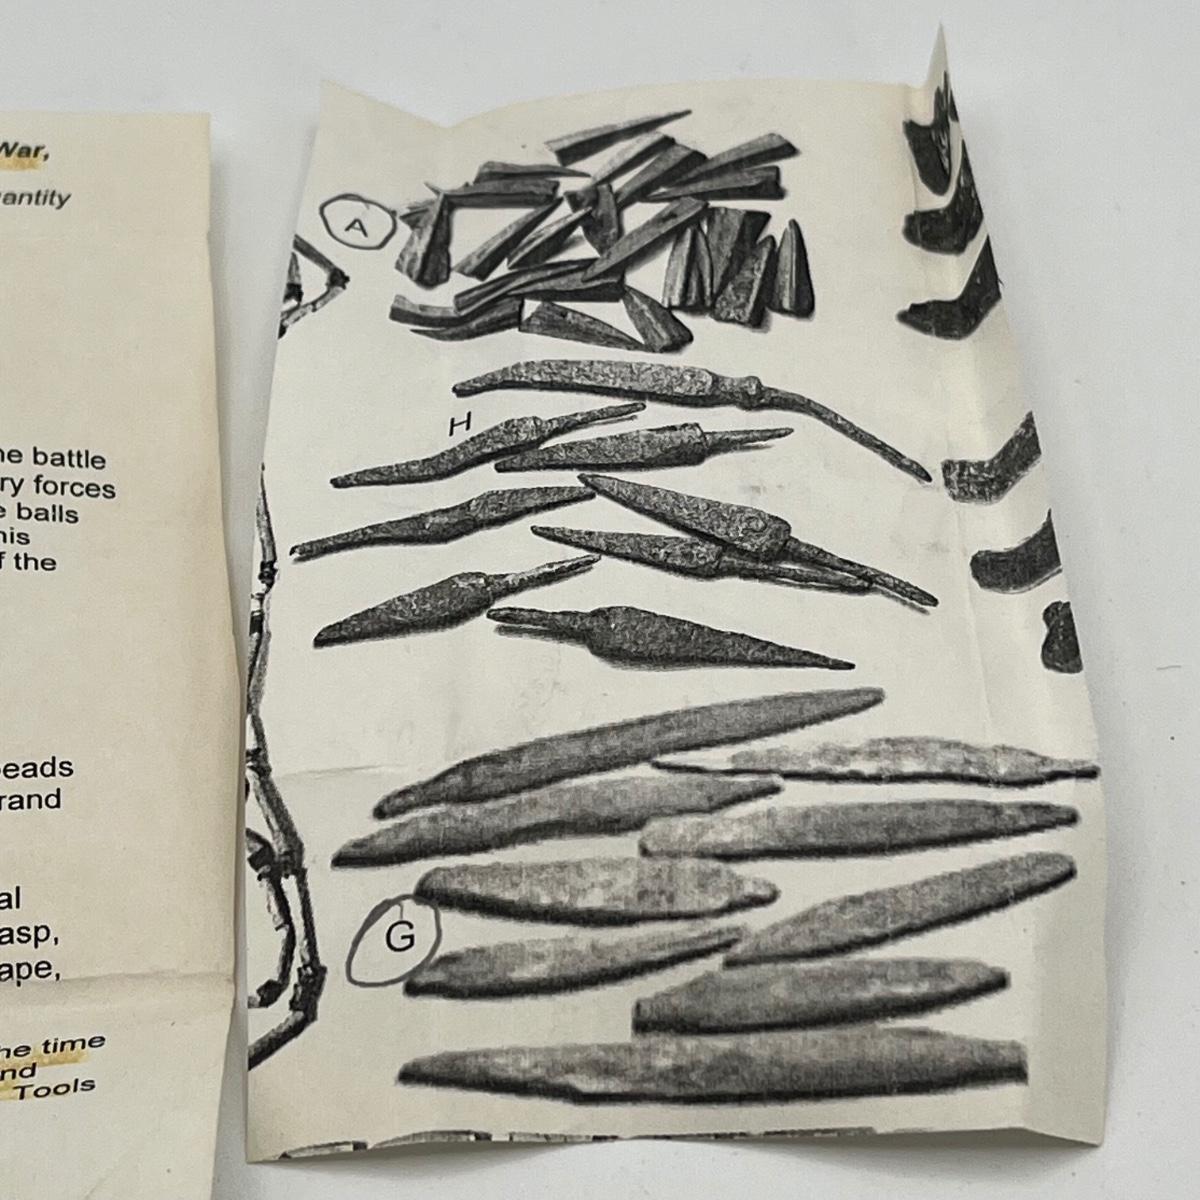 War,
antity
he battle
ry forces
e balls
his
f the
eads
rand
al
asp,
ape,
he time
nd
Tools
A
H
G